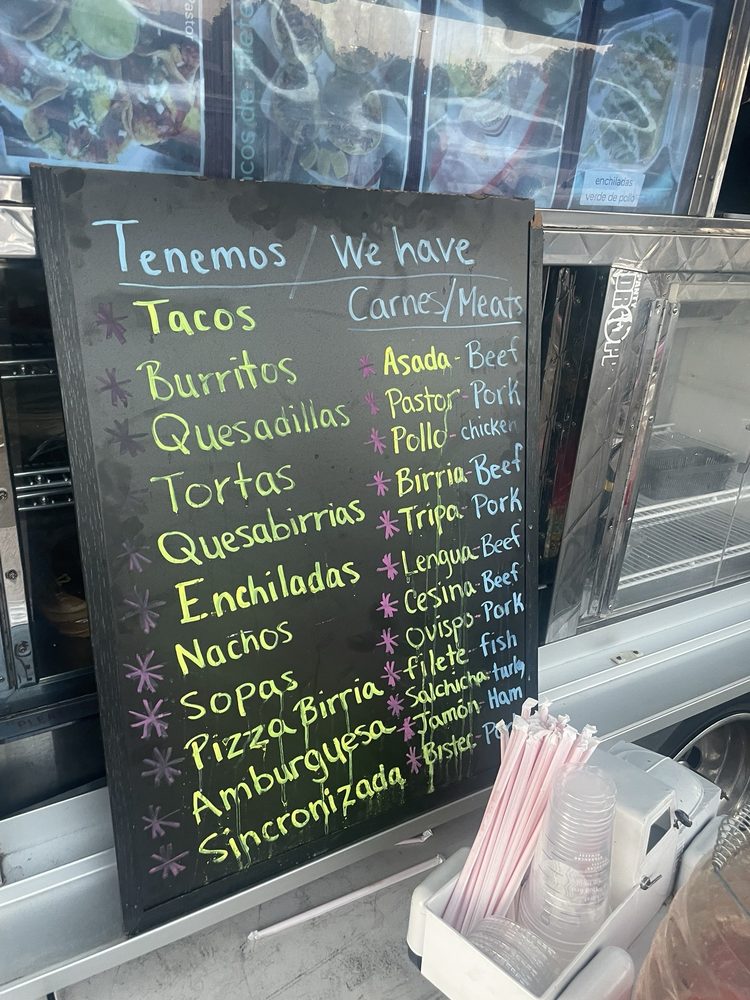 Pastor
enchiladas
verde de pollo
Tenemos / We have
Tacos
Burritos
Quesadillas
Tortas
Quesabirrias
Enchiladas
Nachos
Sopas
Pizza Birria
Amburguesa
Sincronizada
Carnes/Meats
Asada - Beef
Pastor - Pork
Pollo - chicken
Birria - Beef
Tripa - Pork
Lengua - Beef
Cesina - Beef
Ovispo - Pork
filete - fish
Salchicha - turky
Jamón - Ham
Bistec -
PARTY